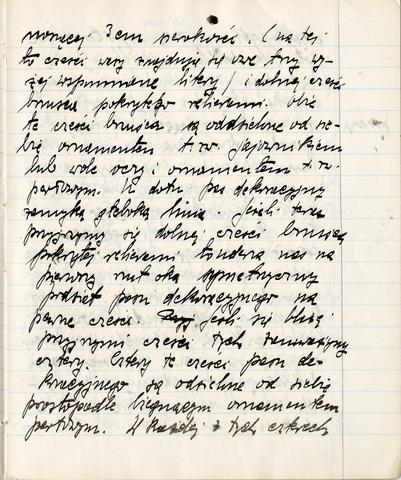 noszącej 3 cm szerokość. (na tej
to części wazy znajdują się owe trzy wy-
żej wspomniane litery) i dolnej części
brusca pokrytego reliefami. Obie
te części brusca są oddzielone od sie-
bie ornamentem t.zw. jajownikiem
lub wole oczy i ornamentem t.zw.
perłowym. U dołu pas dekoracyjny
zamyka głęboka linia. Jeżeli teraz
przyjrzymy się dolnej części brusca
pokrytej reliefami to uderza nas na
pierwszy rzut oka symetryczny
podział pasa dekoracyjnego na
pewne części. jeśli się bliżej
przyjrzymy części tych zauważymy
cztery. Cztery te części pasa de-
koracyjnego są oddzielone od siebie
prostopadle biegnącym ornamentem
perłowym. W każdej z tych czterech